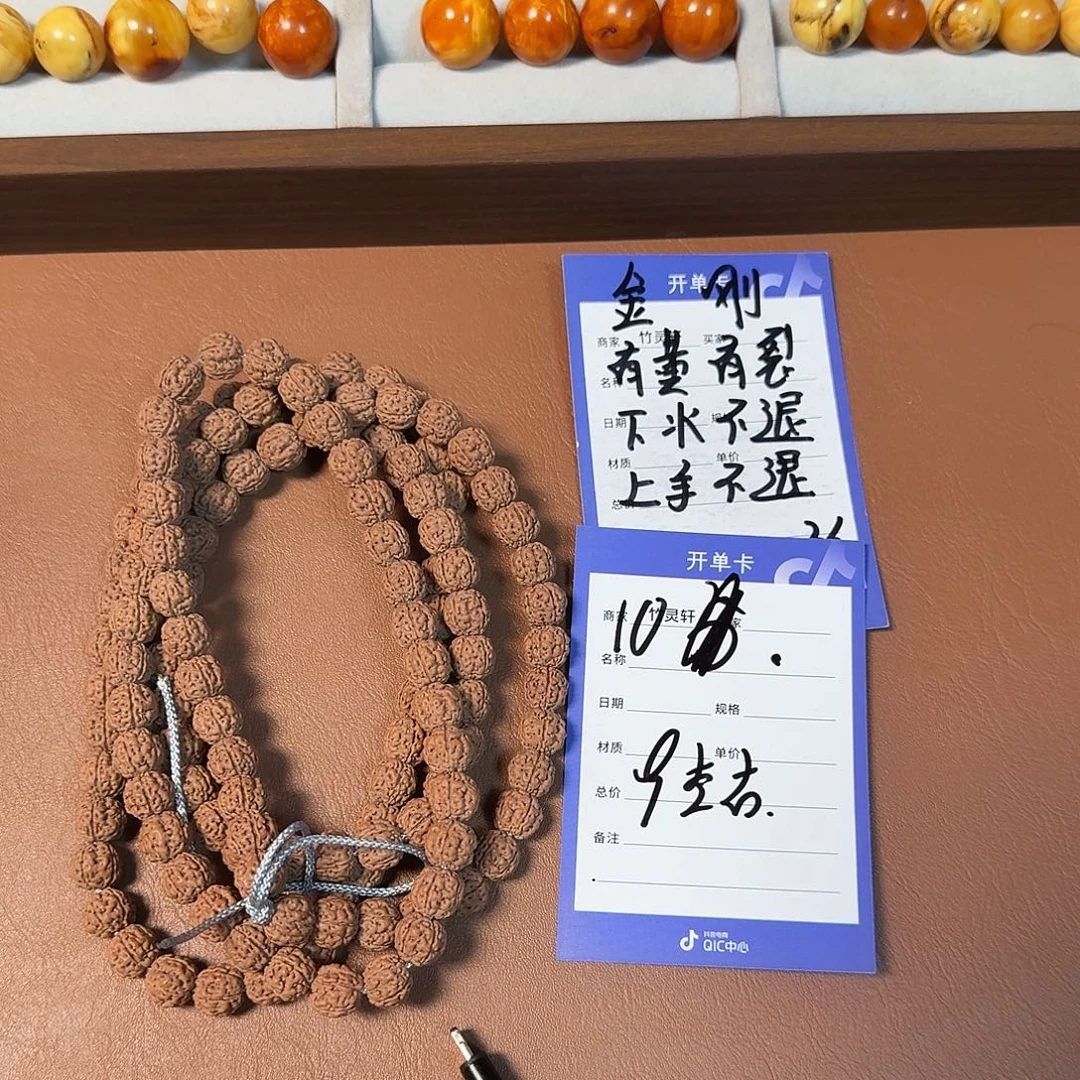 开单卡
金 刚
商家 竹灵 买家
有董 有裂
名称
下水不退
日期
材质 单价
上手不退
开单卡
商家 竹灵轩 家
10
名称
日期 规格
材质 单价
总价
备注
抖音电商
QIC中心